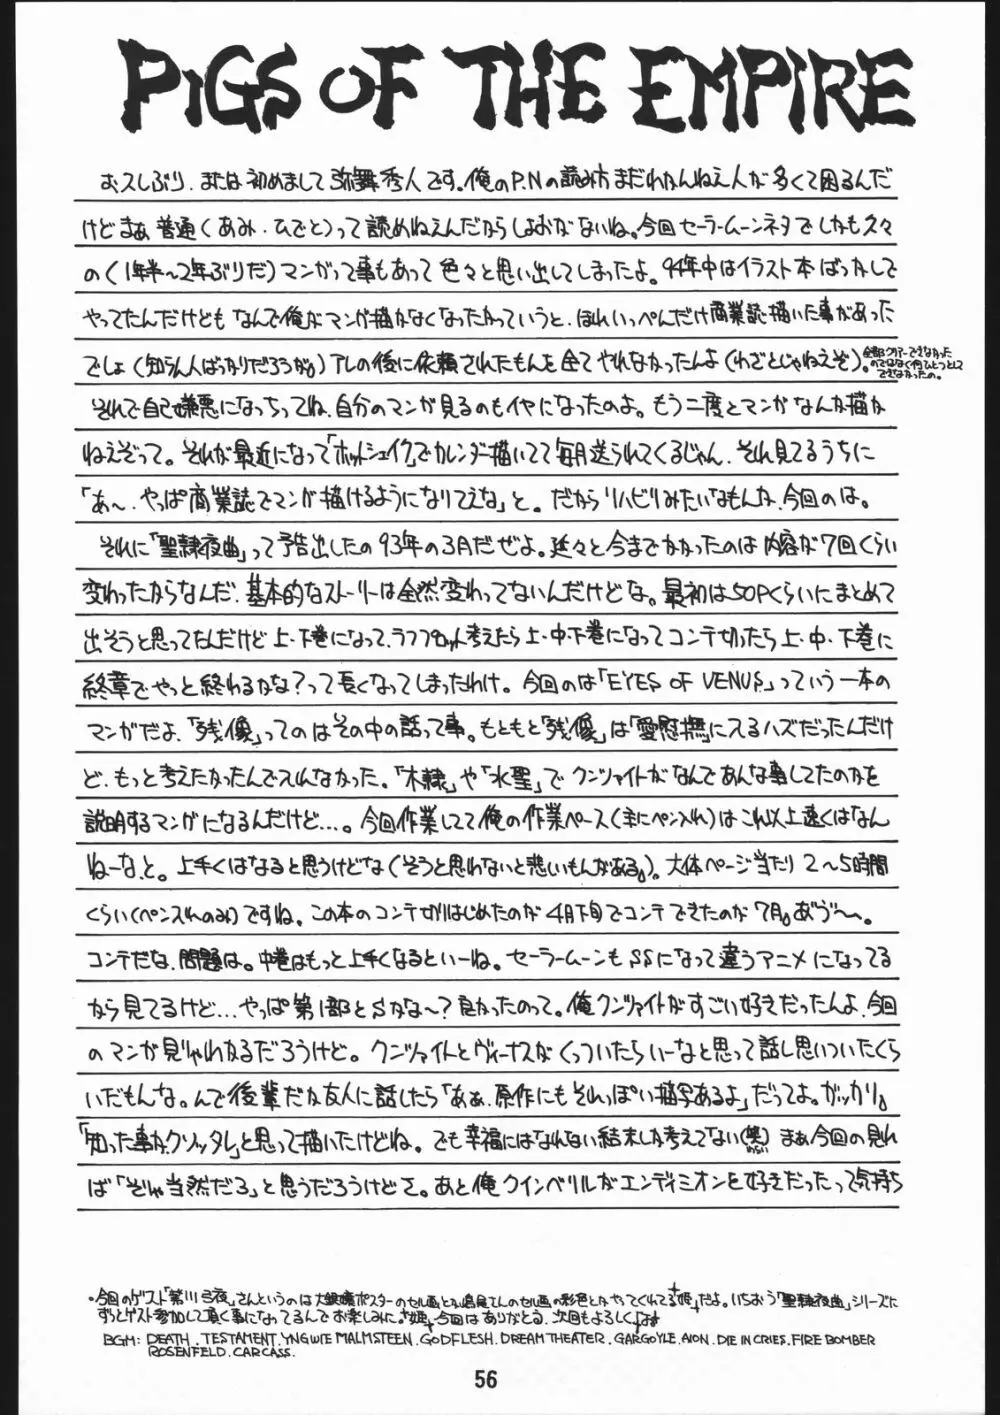 PIGS OF THE EMPIRE
お久しぶり、または初めまして弥舞秀人です。俺のP.Nの読み方まだわかんねえ人が多くて困るんだ
けどまぁ普通(あみ・ひでと)って読めねえんだからしょおがないね。今回セーラームーンネタでしかも久々
の(1年半〜2年ぶりだ)マンガって事もあって色々と思い出してしまったよ。94年中はイラスト本ばっかして
やってたんだけども なんで俺がマンガ描かなくなったかっていうと、ほれ いっぺんだけ商業誌描いた事があった
でしょ(知らん人ばっかりだろうが。)TLの後に依頼されたもんを全てやれなかったんよ(わざとじゃねえぞ)。
全部クリアーできなかった
のではなく何ひとつとして
できなかったの。
それで自己嫌悪になっちってね、自分のマンガ見るのもイヤになったのよ。もう二度とマンガなんか描か
ねえぞって。それが最近になって「ホットシェイク」でカレンダー描いてて毎月送られてくるじゃん、それ見てるうちに
「あ〜、やっぱ商業誌でマンガ描けるようになりてえな」と。だからリハビリみたいなもんか、今回のは。
それに「聖隷夜曲」って予告出したの93年の3月だぜよ。延々と今までかかったのは内容が7回くらい
変わったからなんだ、基本的なストーリーは全然変わってないんだけどな。最初は50Pくらいにまとめて
出そうと思ってたんだけど上・下巻になって、ラフプロット考えたら上・中・下巻になってコンテ切ったら上・中・下巻に
終章でやっと終わるかな?って長くなってしまったわけ。今回のは「EYES OF VENUS」っていう一本の
マンガだよ、「残像」ってのはその中の話って事。もともと「残像」は「愛慰撫」に入るハズだったんだけ
ど、もっと考えたかったんで入れなかった。「木隷」や「水聖」でクンツァイトがなんであんな事してたのかを
説明するマンガになるんだけど…。今回作業してて俺の作業ペース(主にペン入れ)はこれ以上速くはなん
ねーな、と。上手くはなると思うけどな(そうと思わないと悲しいもんがある。)。大体ページ当たり2〜5時間
くらい(ペン入れのみ)ですね。この本のコンテ切りはじめたのが4月下旬でコンテできたのが7月。あ゛う゛〜。
コンテだな、問題は。中巻はもっと上手くなるといーね。セーラームーンもSSになって違うアニメになってる
から見てるけど…やっぱ第1部とSかな〜?良かったのって。俺クンツァイトがすごい好きだったんよ、今回
のマンガ見じゃわかるだろうけど。クンツァイトとヴィーナスがくっついたらいーなと思って話し思いついたくら
いだもんな。んで後輩だか友人に話したら「あぁ、原作にもそれっぽい描写あるよ」だってよ。ガッカリ。
「知った事か、クソッタレ」と思って描いたけどね。でも幸福にはなれない結末しか考えてない(笑)まぁ今回の見れ
わらい
ば「そりゃ当然だろ」と思うだろうけどさ。あと俺クインベリルがエンディミオンを好きだったって気持ち
・今回のゲスト「紫川弓夜」さんというのは大銀嬢ポスターのセル画とか島尾さんのセル画の彩色とかやってくれてる“姫”だよ。いちおう「聖隷夜曲」シリーズに
ずっとゲスト参加して頂く事になってるんでお楽しみに。“姫”今回はありがとう、次回もよろしくします
BGM: DEATH. TESTAMENT. YNGWIE MALMSTEEN. GODFLESH. DREAM THEATER. GARGOYLE. AION. DIE IN CRIES. FIRE BOMBER
ROSENFELD. CARCASS.
56